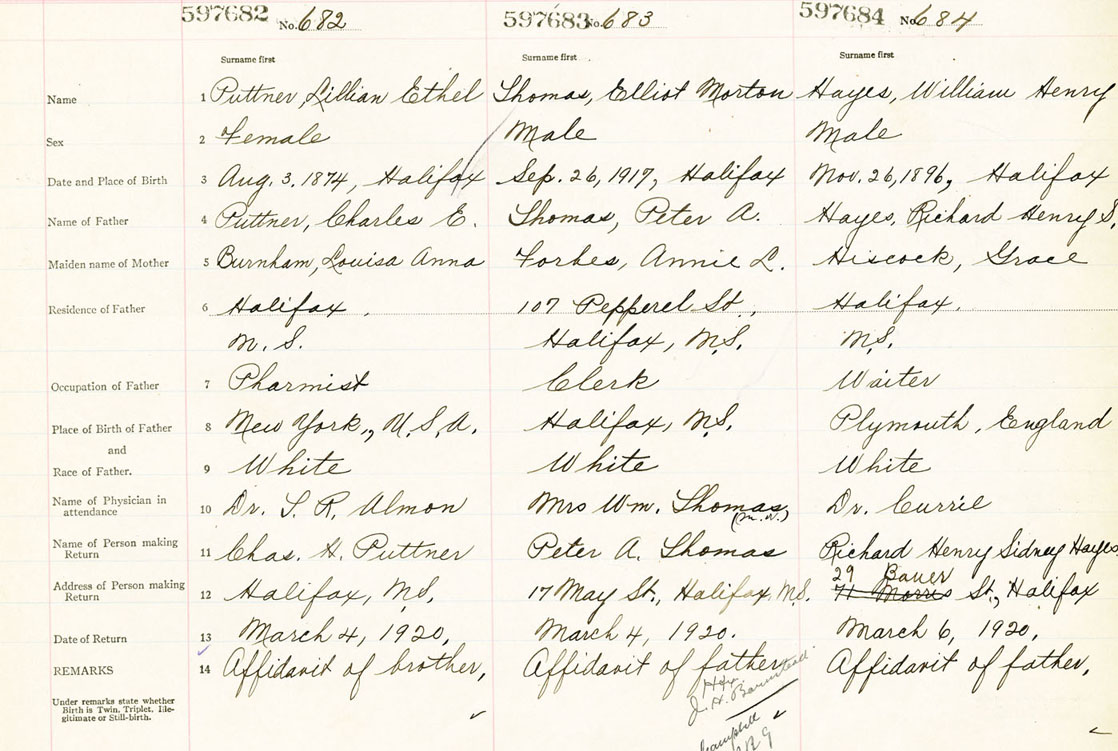 597682 No. 682 597683 No. 683 597684 No. 684
Surname first Surname first Surname first
Name 1 Puttner, Lillian Ethel Thomas, Elliot Morton Hayes, William Henry
Sex 2 Female Male Male
Date and Place of Birth 3 Aug. 3. 1874, Halifax Sep. 26, 1917, Halifax Nov. 26, 1896, Halifax
Name of Father 4 Puttner, Charles E. Thomas, Peter A. Hayes, Richard Henry S.
Maiden name of Mother 5 Burnham, Louisa Anna Forbes, Annie L. Hiscock, Grace
Residence of Father 6 Halifax, 107 Pepperel St., Halifax,
N. S. Halifax, N.S. N.S.
Occupation of Father 7 Pharmist Clerk Waiter
Place of Birth of Father 8 New York, U.S.A. Halifax, N.S. Plymouth, England
and
Race of Father. 9 White White White
Name of Physician in
attendance 10 Dr. T. R. Almon Mrs Wm. Thomas Dr. Currie
(m.w.)
Name of Person making
Return 11 Chas. H. Puttner Peter A. Thomas Richard Henry Sidney Hayes
29 Bauer
Address of Person making
Return 12 Halifax, N.S. 17 May St., Halifax, N.S. 71 Morris St., Halifax
Date of Return 13 March 4, 1920, March 4, 1920. March 6, 1920,
REMARKS 14 Affidavit of brother, Affidavit of father, Affidavit of father,
Hfx.
J. H.
Campbell
Under remarks state whether
Birth is Twin, Triplet, Ille-
gitimate or Still-birth.